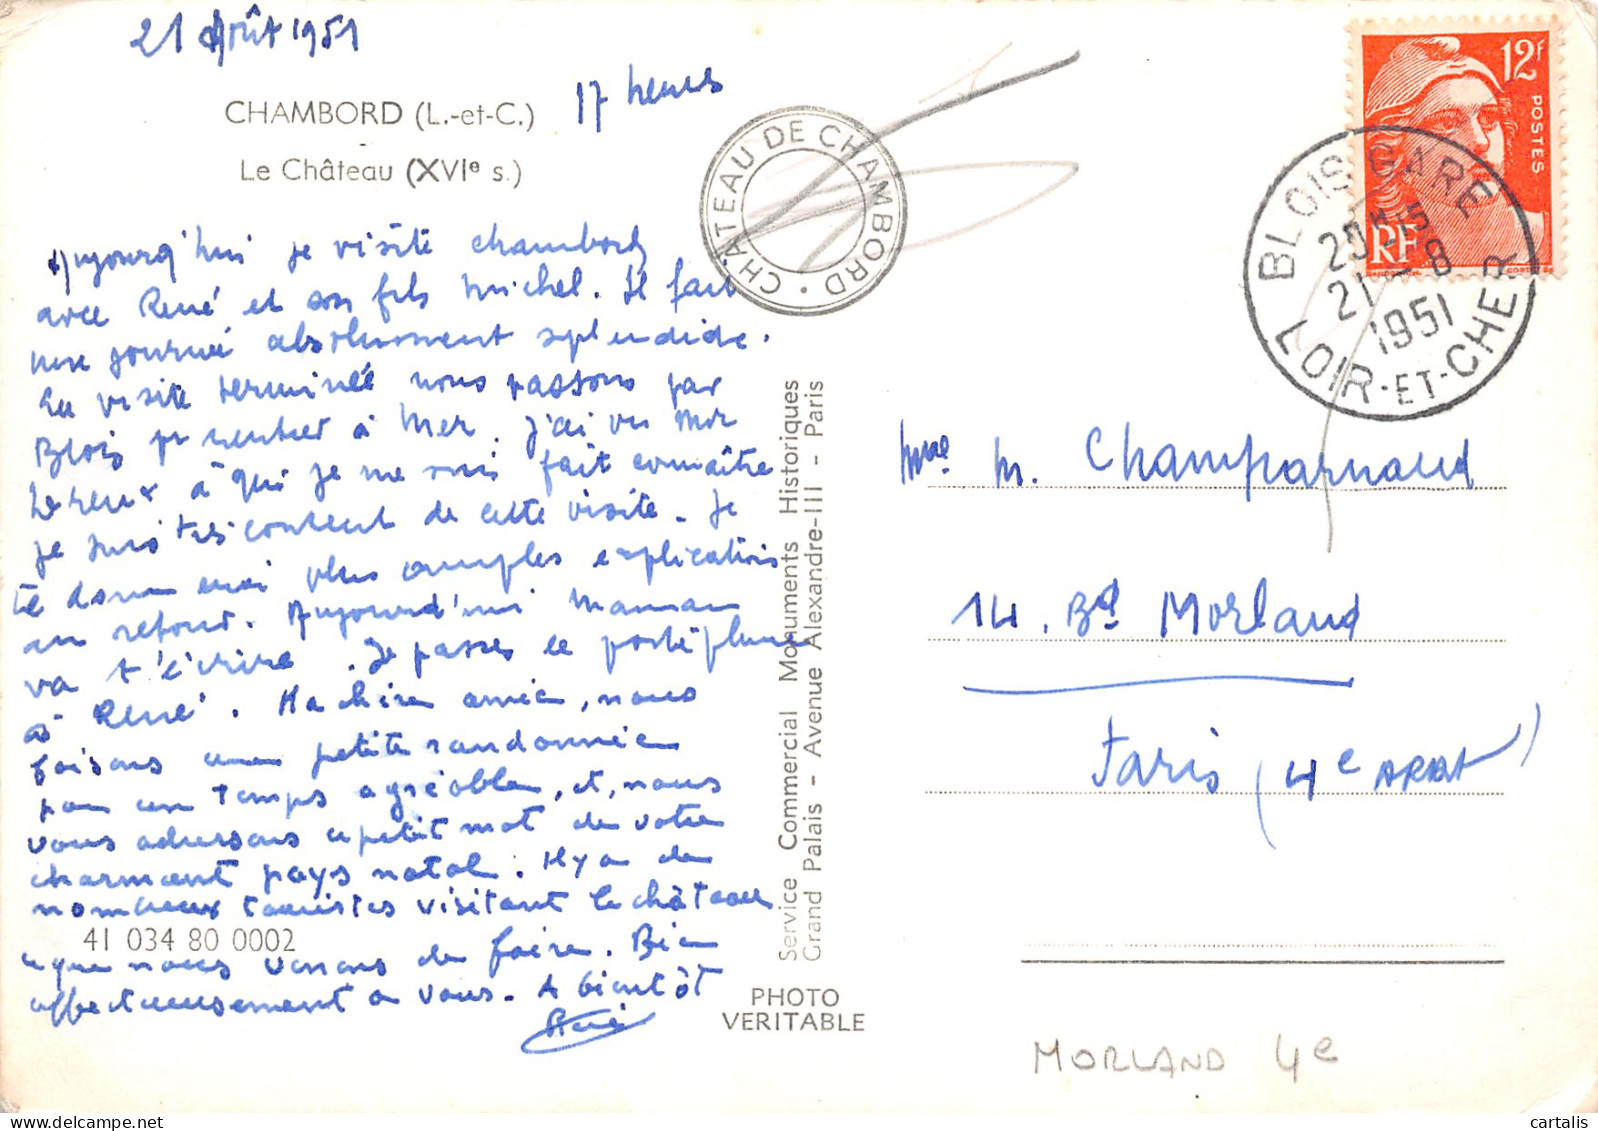 21 Août 1951
17 heures
CHAMBORD (L.-et-C.)
Le Château (XVIe s.)
Aujourd'hui je visite chambord
avec René et son fils Michel. Il fait
une journée absolument splendide.
La visite terminée nous passons par
Blois pr rentrer à Mer. J'ai vu Mr
à qui je me suis fait connaître
je suis très content de cette visite. Je
te donnerai plus amples explications
au retour. Aujourd'hui Maman
va t'écrire. Je passe le porte plume
à René. Ma chère amie, nous
faisons une petite randonnée
par un temps agréable, et, nous
vous adressons ce petit mot de votre
charmant pays natal. Il y a de
nombreux touristes visitant le château
41 034 80 0002
ce que nous venons de faire. Bien
affectueusement à vous. A bientôt
René
CHATEAU DE CHAMBORD
Service Commercial Monuments Historiques
Grand Palais - Avenue Alexandre-III - Paris
PHOTO
VERITABLE
12F
POSTES
RF
BLOIS GARE
20H15
21-8
1951
LOIR-ET-CHER
Mme M. Champarnaud
14. Bd Morland
Paris (4e ARRt)
MORLAND 4e
cartalis